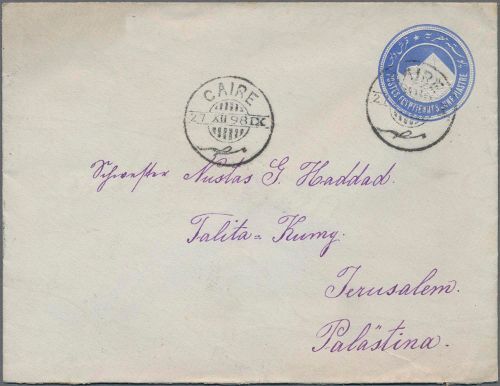 POSTES EGYPTIENNES UNE PIASTRE
CAIRE
27 XII 98 IX
CAIRE
Schwester Nustas G. Haddad.
Talita=Kumy.
Jerusalem.
Palästina.